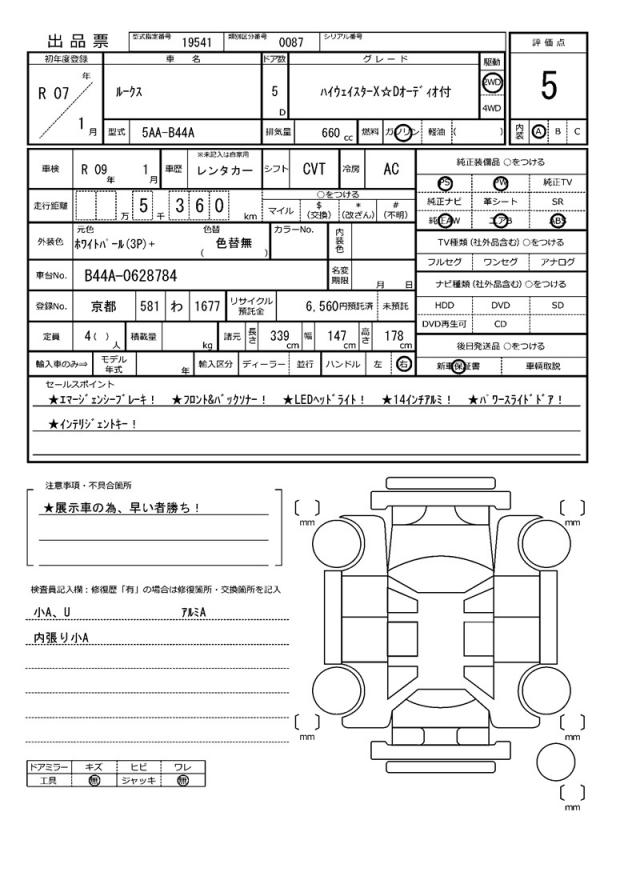 出品票 型式指定番号 19541 類別区分番号 0087 シリアル番号
初年度登録 車名 ドア数 グレード 駆動 評価点
R 07 年 1 月 ルークス 5 D ハイウェイスターX☆Dオーディオ付 2WD 4WD 5
型式 5AA-B44A 排気量 660 cc 燃料 ガソリン 軽油 ( ) 内装 A B C
車検 R 09 年 1 月 車歴 ※未記入は自家用 レンタカー シフト CVT 冷房 AC 純正装備品 ○をつける
PS PW 純正TV
走行距離 万 5 千 3 6 0 km ○をつける マイル $ (交換) * (改ざん) # (不明) 純正ナビ 革シート SR
純正AW エアB ABS
外装色 元色 ホワイトパール(3P)+ 色替 ( 色替無 ) カラーNo. 内装色 TV種類 (社外品含む) ○をつける
フルセグ ワンセグ アナログ
車台No. B44A-0628784 名変期限 月 日 ナビ種類 (社外品含む) ○をつける
登録No. 京都 581 わ 1677 リサイクル預託金 6,560円預託済 未預託 HDD DVD SD
DVD再生可 CD
定員 4( ) 人 積載量 kg 諸元 長さ 339 cm 幅 147 cm 高さ 178 cm 後日発送品 ○をつける
輸入車のみ⇒ モデル年式 年 輸入区分 ディーラー 並行 ハンドル 左 右 新車保証書 車輌取説
セールスポイント
★エマージェンシーブレーキ! ★フロント&バックソナー! ★LEDヘッドライト! ★14インチアルミ! ★パワースライドドア!
★インテリジェントキー!
注意事項・不具合箇所
★展示車の為、早い者勝ち!
mm mm
検査員記入欄:修復歴「有」の場合は修復箇所・交換箇所を記入
小A、U アルミA
内張り小A
mm mm
ドアミラー キズ ヒビ ワレ
工具 無 ジャッキ 無
mm